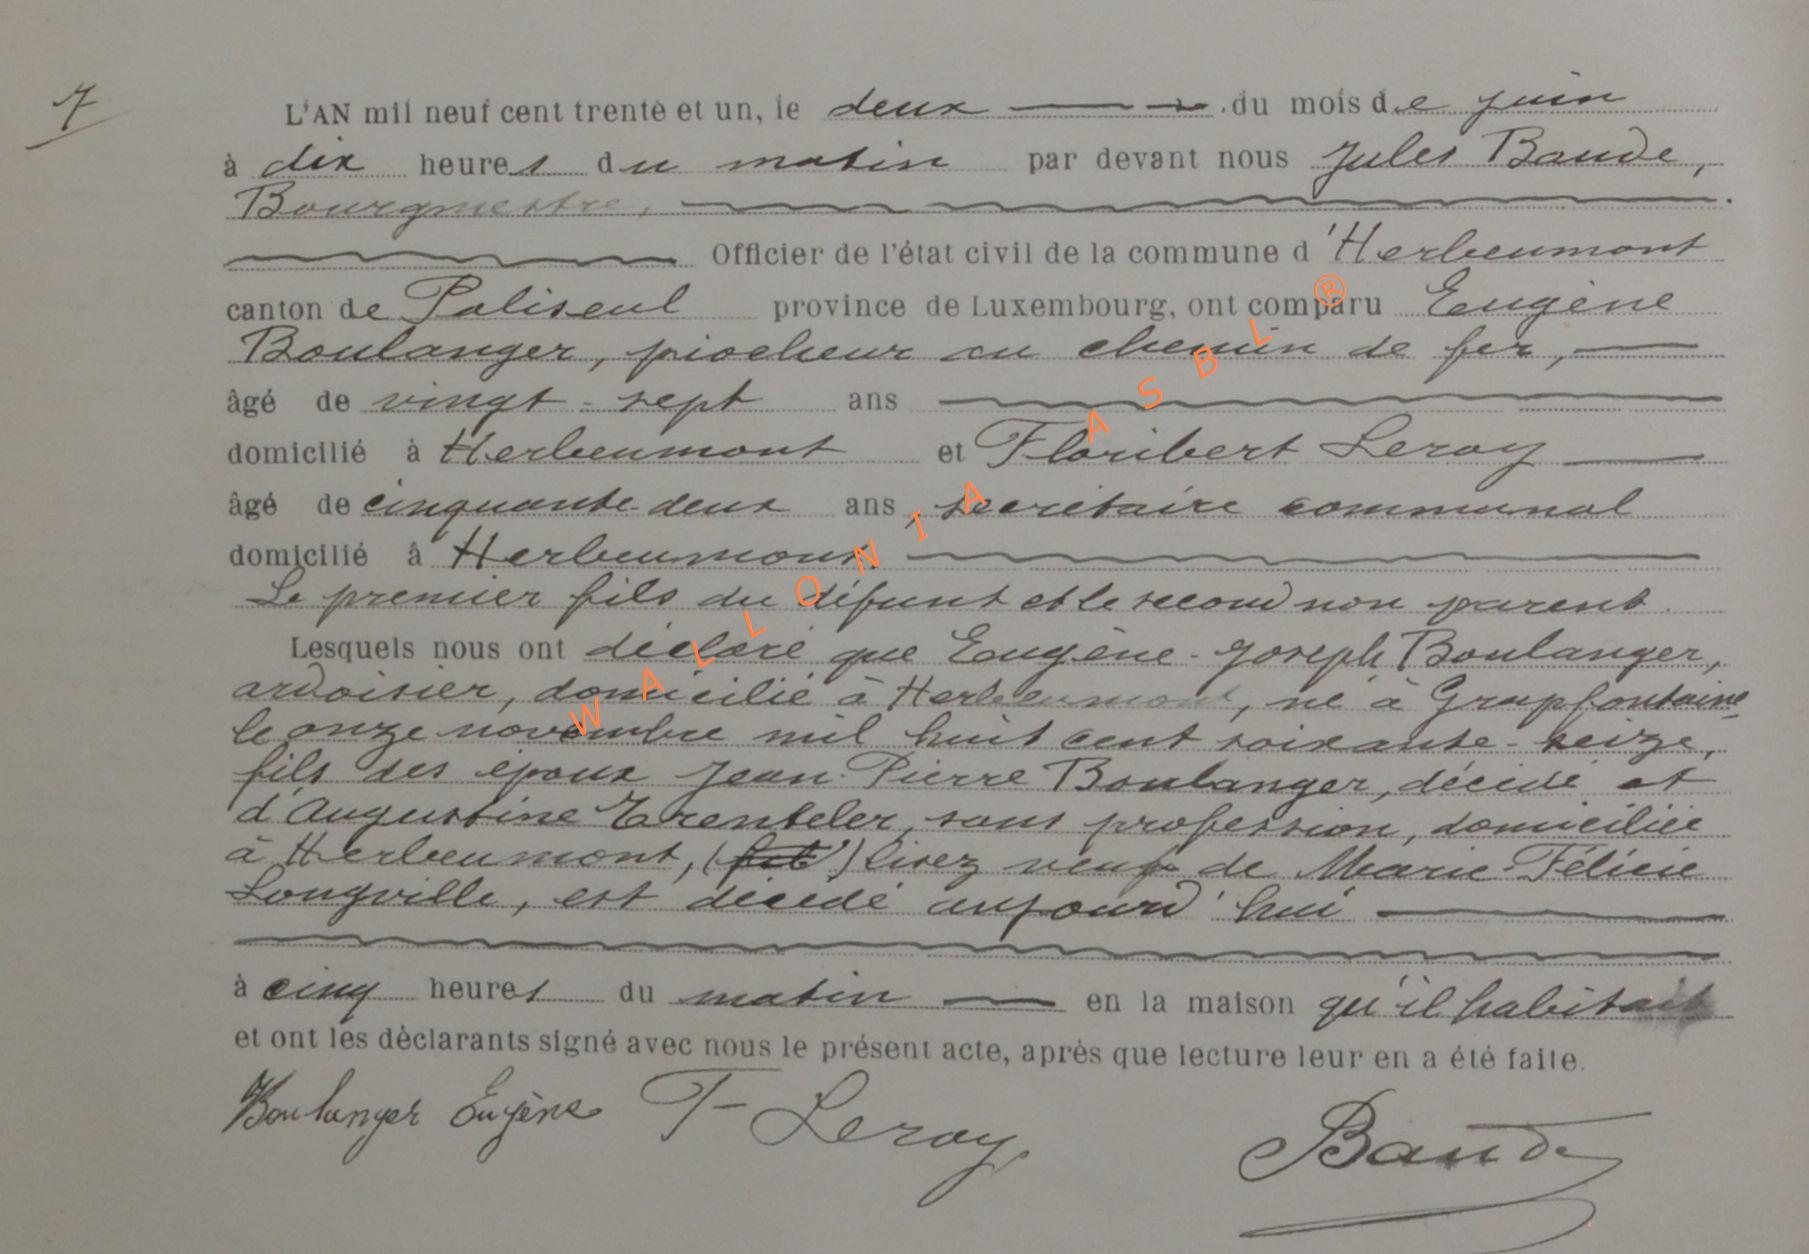 7
L'AN mil neuf cent trente et un, le deux du mois de juin
à dix heures du matin par devant nous Jules Baude,
Bourgmestre,
Officier de l'état civil de la commune d'Herbeumont
canton de Paliseul province de Luxembourg, ont comparu Eugène
Boulanger, piocheur au chemin de fer,
âgé de vingt-sept ans
domicilié à Herbeumont et Floribert Leroy
âgé de cinquante-deux ans, secrétaire communal
domicilié à Herbeumont
Le premier fils du défunt et le second non parent.
Lesquels nous ont déclaré que Eugène-Joseph Boulanger,
ardoisier, domicilié à Herbeumont, né à Grapfontaine
le onze novembre mil huit cent soixante-seize,
fils des époux Jean-Pierre Boulanger, décédé et
d'Augustine Trenteler, sans profession, domiciliée
à Herbeumont, (fut) lisez veuf de Marie-Félicie
Longville, est décédé aujourd'hui
à cinq heures du matin en la maison qu'il habitait
et ont les déclarants signé avec nous le présent acte, après que lecture leur en a été faite.
Boulanger Eugène F Leroy
Baude
WALLONIA ASBL ®